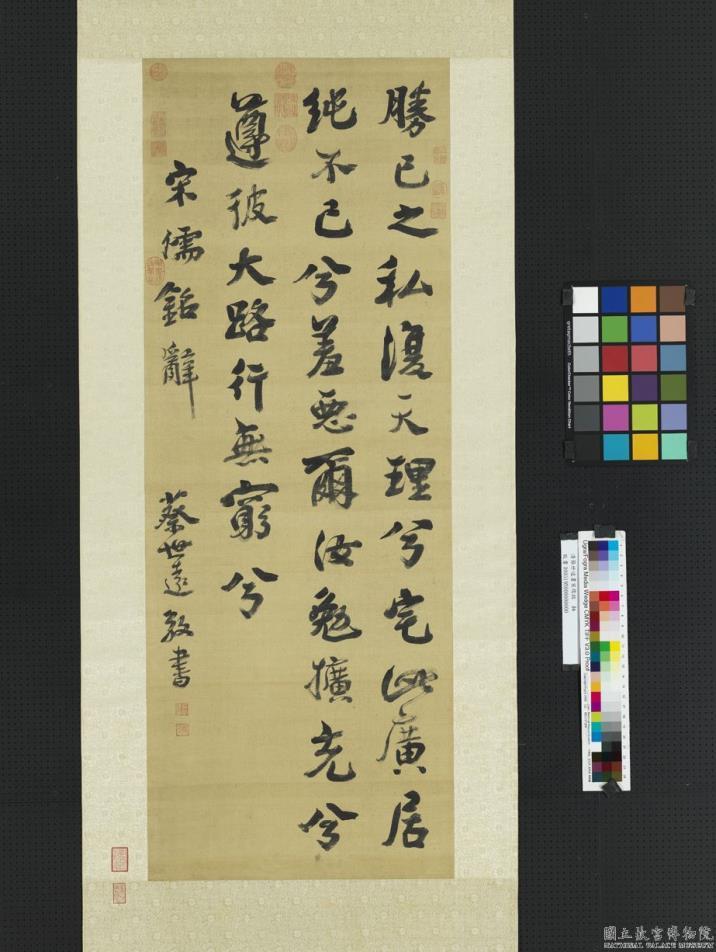 勝己之私復天理兮宅此廣居
純不已兮羞惡爾汝勉擴充兮
遵彼大路行無窮兮
宋儒銘辭
蔡世遠敬書
國立故宮博物院
NATIONAL PALACE MUSEUM